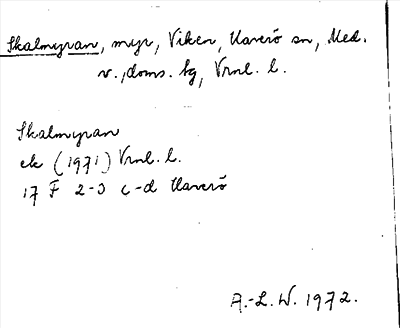 Skalmyran, myr, Viken, Haverö sn, Med.
v., doms. bg, Vrnl. l.
Skalmyran
ek (1971) Vrnl. l.
17 F 2-3 c-d Haverö
A.-L. W. 1972.